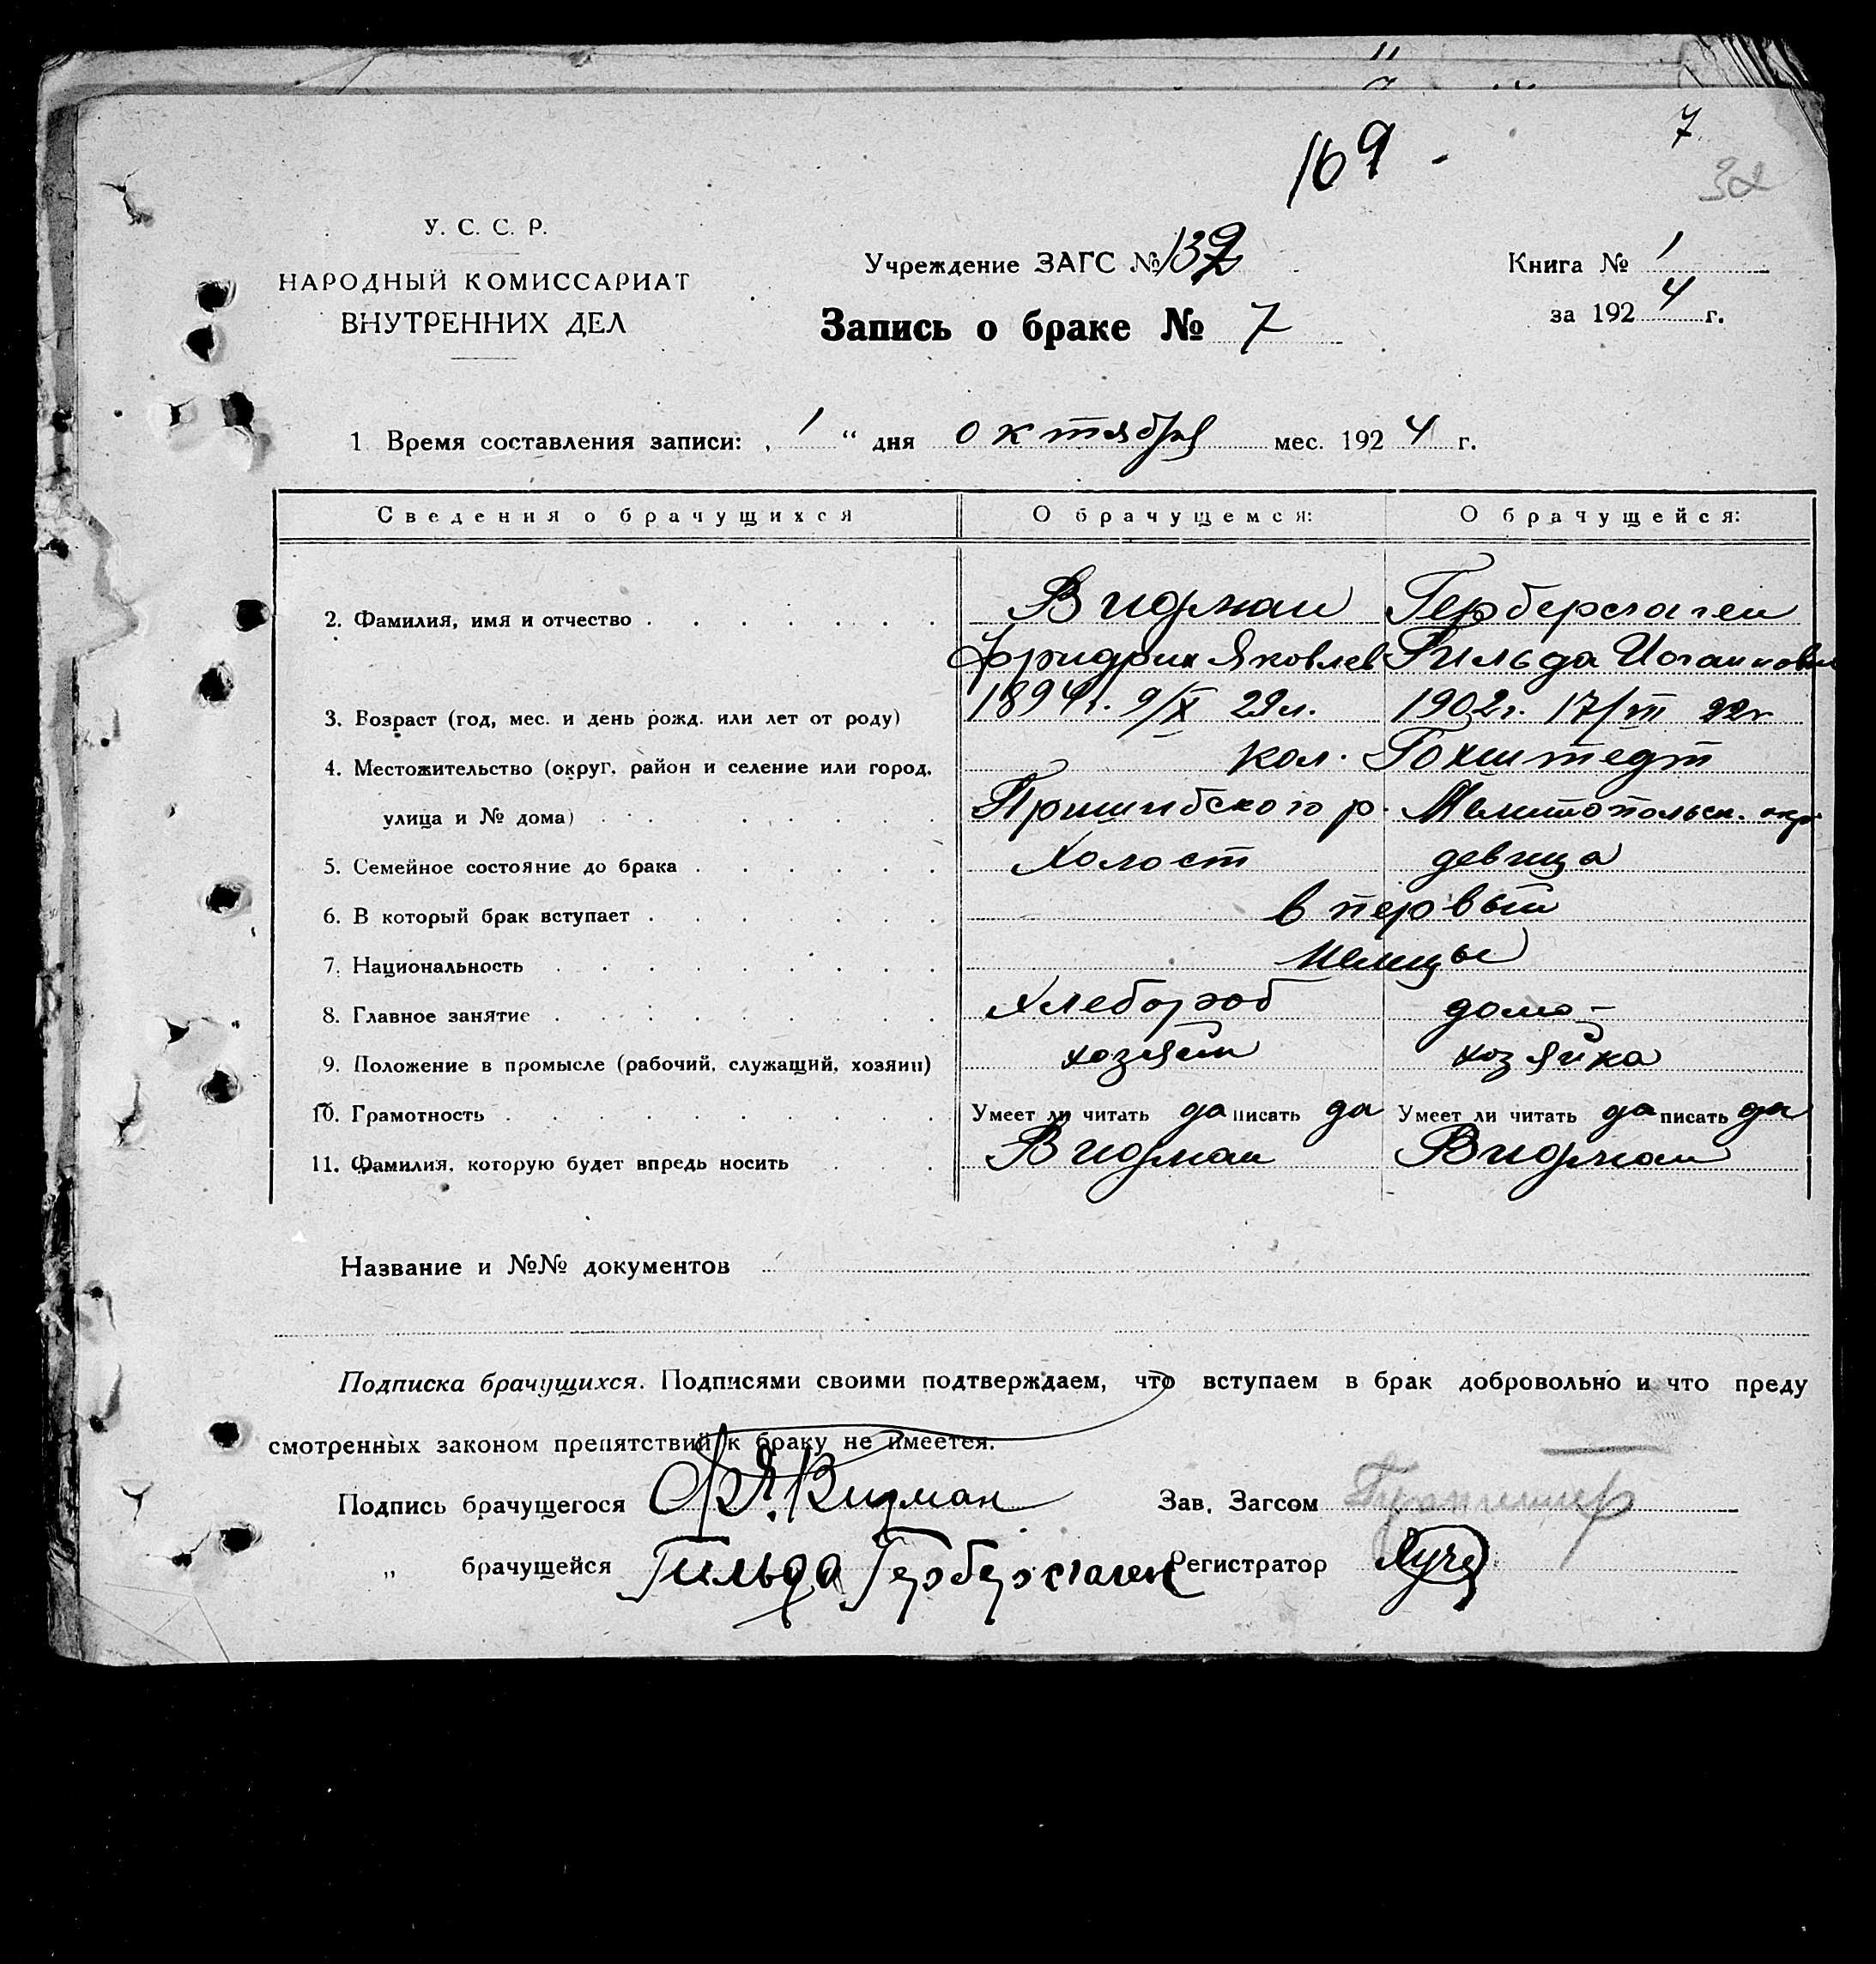 169 -
7
У. С. С. Р.
НАРОДНЫЙ КОМИССАРИАТ
ВНУТРЕННИХ ДЕЛ
Учреждение ЗАГС №
Запись о браке № 7
Книга № 1
за 1924 г.
1 Время составления записи: „ 1 “ дня октября мес. 1924 г.
Сведения о брачущихся О брачущемся: О брачущейся:
2. Фамилия, имя и отчество Видман Герберсгаген
Фридрих Яковлев Гильда Иоганновн
3. Возраст (год, мес. и день рожд. или лет от роду) 1894 г. 9/X 29 л. 1902 г. 22 г
4. Местожительство (округ, район и селение или город, кол. Гохштедт
улица и № дома) Пришибского р. Мелитопольск. окр.
5. Семейное состояние до брака Холост девица
6. В который брак вступает в первый
7. Национальность немцы
8. Главное занятие хлебороб домо-
9. Положение в промысле (рабочий, служащий, хозяин) хозяин хозяйка
10. Грамотность Умеет ли читать да писать да Умеет ли читать да писать да
11. Фамилия, которую будет впредь носить Видман Видман
Название и №№ документов
Подписка брачущихся. Подписями своими подтверждаем, что вступаем в брак добровольно и что преду
смотренных законом препятствий к браку не имеется.
Подпись брачущегося Ф. Я. Видман Зав. Загсом
„ брачущейся Гильда Герберсгаген Регистратор